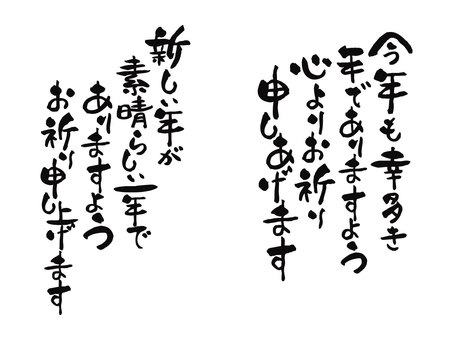 今年も幸多き
年でありますよう
心よりお祈り
申しあげます
新しい年が
素晴らしい一年で
ありますよう
お祈り申し上げます